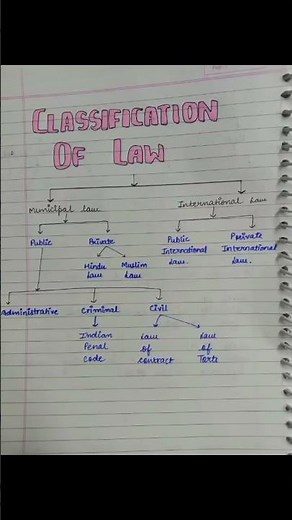 CLASSIFICATION
OF LAW
Municipal Law
International Law
Public
Private
Public
International
Law.
Private
International
Law.
Hindu
Law
Muslim
Law
Administrative
Criminal
Civil
Indian
Penal
Code
Law
of
contract
Law
of
Torts